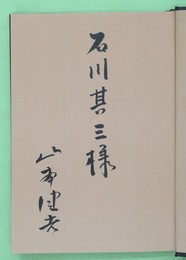 石川其三様
山本健吉